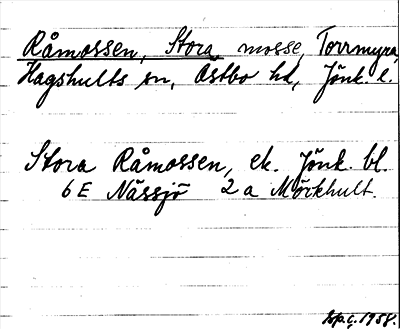 Råmossen, Stora mosse, Torrmyra,
Hagshults sn, Östbo hd, Jönk. l.
Stora Råmossen, ek. Jönk. bl.
6 E Nässjö 2 a Mörkhult.
1958.